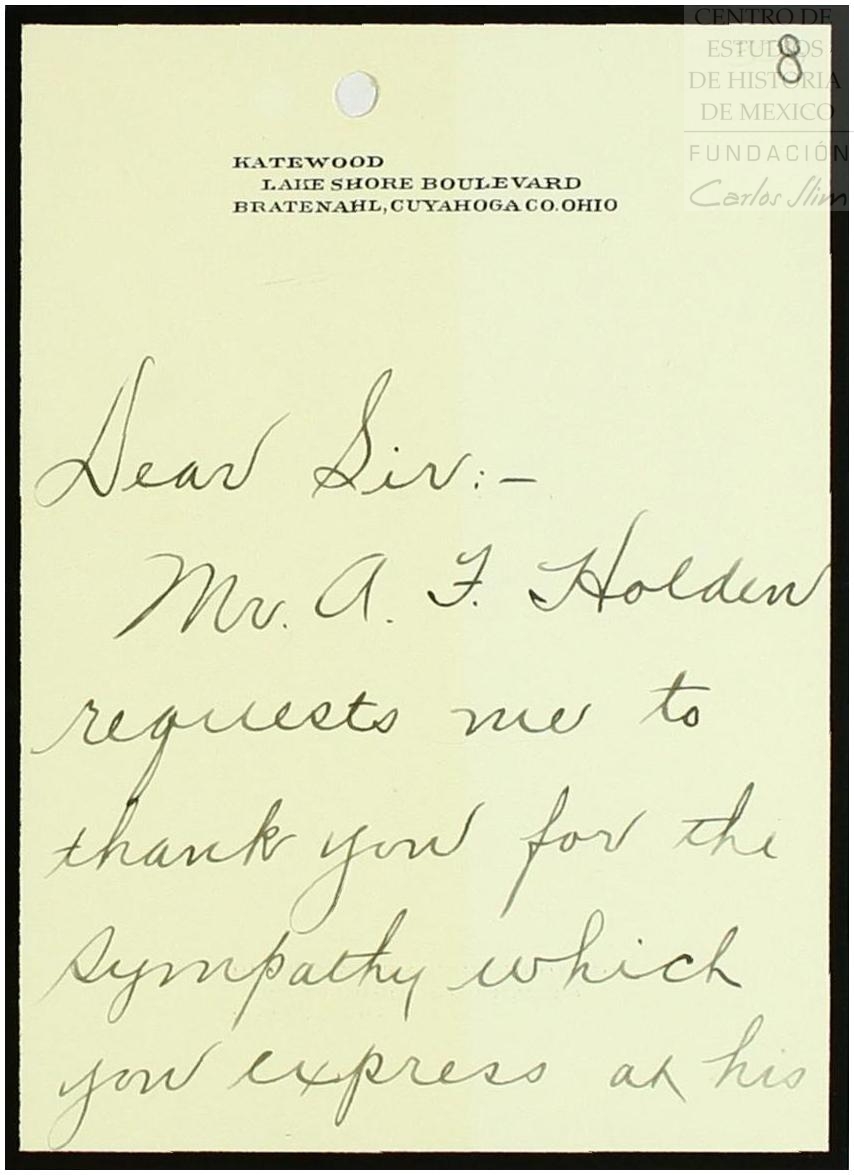 CENTRO DE
ESTUDIOS
DE HISTORIA
DE MEXICO
FUNDACIÓN
Carlos Slim
8
KATEWOOD
LAKE SHORE BOULEVARD
BRATENAHL, CUYAHOGA CO. OHIO
Dear Sir:—
Mr. A. F. Holden
requests me to
thank you for the
sympathy which
you express at his